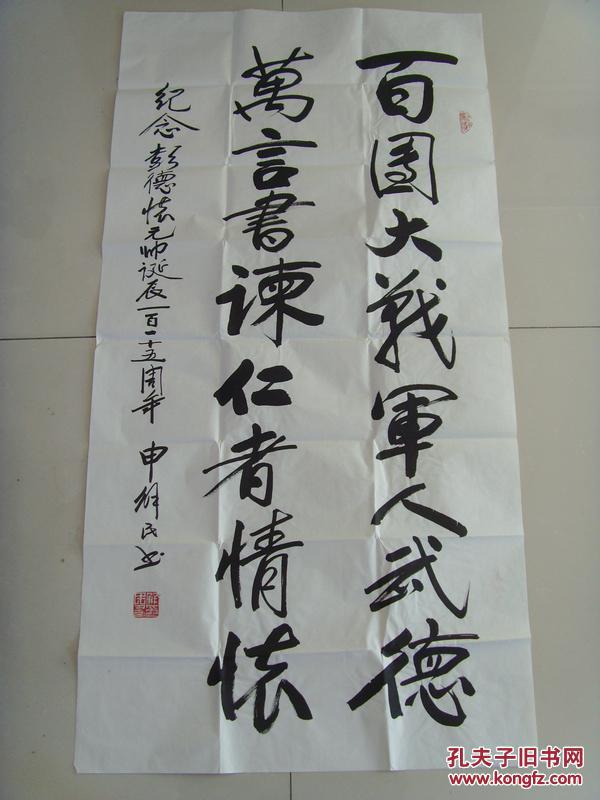 百團大戰軍人武德
萬言書諫仁者情懷
纪念彭德怀元帅诞辰一百一十五周年 申 民书
孔夫子旧书网
www.kongfz.com